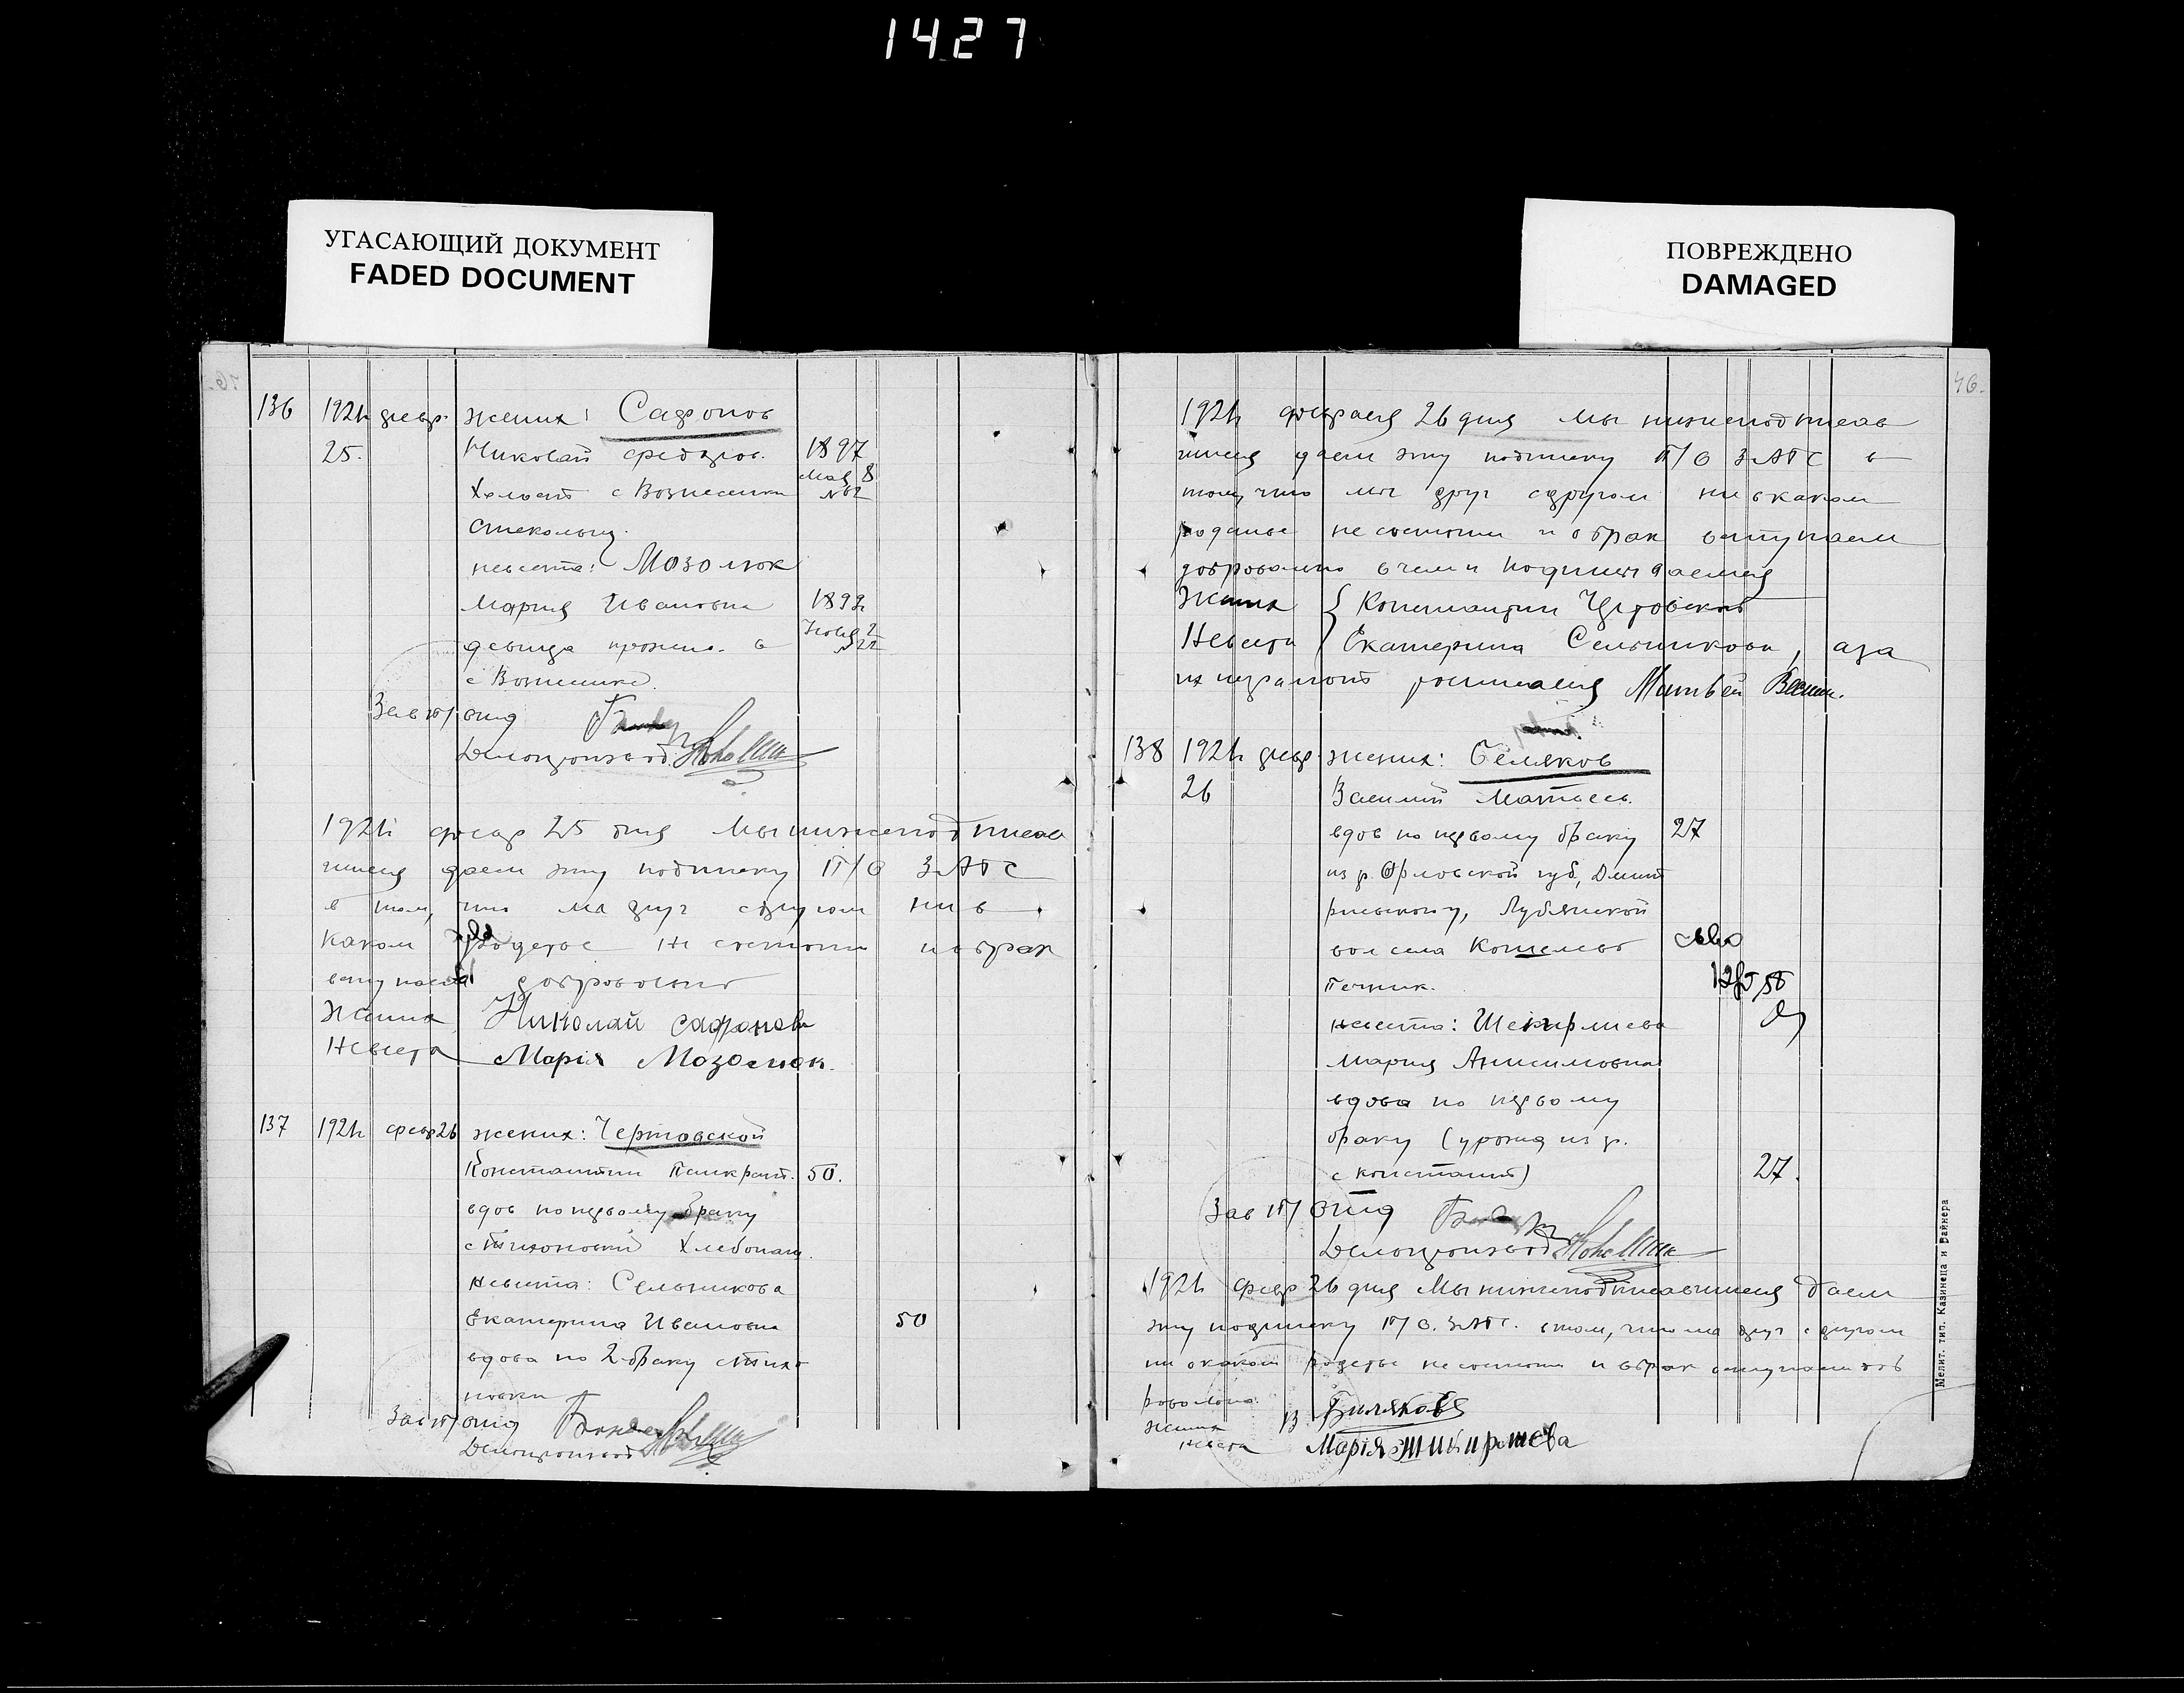 1427
УГАСАЮЩИЙ ДОКУМЕНТ
FADED DOCUMENT
ПОВРЕЖДЕНО
DAMAGED
136 192 февр. жених: Сафонов
25. Николай 1897
Холост с Вознесенки №62
невеста: Мозолюк
Мария Ивановна
девица прожив. в
с Вознесенке
Зав п/отд
Делопроизвод.
192 25 дня Мы нижеподписав
шиеся даем эту подписку П/О ЗАГС
в том, что мы друг с другом ни в
каком родстве не состоим и в брак
вступаем добровольно
Жених Николай Сафонов
Невеста Марія Мозолюк.
137 192 февр 26 жених: Чертовской
Константин Панкрат. 50.
вдов по первому браку
Невеста: Сельникова
Екатерина Ивановна 50
вдова по 2 браку с Тихо
новки
Зав п/отд
Делопроизвод
46.
192 февраля 26 дня мы нижеподписав
шиеся даем эту подписку П/О ЗАГС в
том, что мы друг с другом ни в каком
родстве не состоим и в брак вступаем
добровольно в чем и подписуемся
Жених Константин
Невеста Екатерина Сельникова, а за
их неграмот росписался Матвей
138 192 февр жених: Беляков
26 Василий Матвеев.
вдов по первому браку 27
из гр. Орловской губ., Дмит
вол села
Печник.
невеста:
Мария Анисимовна
вдова по первому
браку (урожд из гр.
с Констант) 27.
Зав п/отд
Делопроизвод
192 февр 26 дня Мы нижеподписавшиеся даем
эту подписку П/О. ЗАГС. в том, что мы друг с другом
ни в каком родстве не состоим и в брак вступаем доб
ровольно.
Жених В
Невеста Марія
Мелит. тип. Казинеца и Вайнера